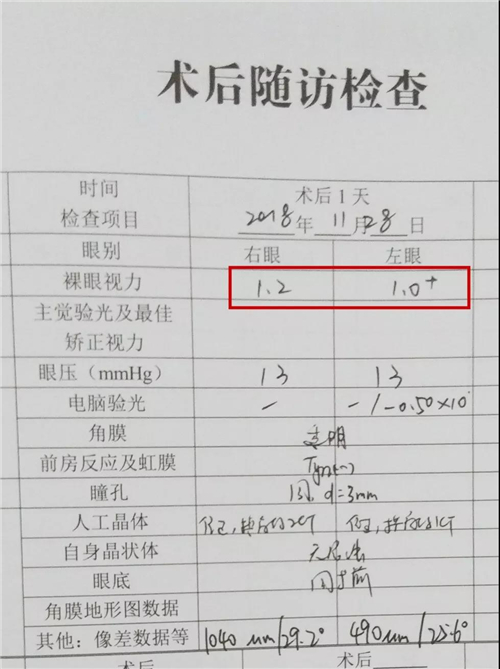 术后随访检查
时间 术后1天
检查项目 2018年 11月28日
眼别 右眼 左眼
裸眼视力 1.2 1.0+
主觉验光及最佳
矫正视力
眼压（mmHg） 13 13
电脑验光 - -/-0.50×10
角膜 透明
前房反应及虹膜 Tyn(-)
瞳孔 圆. d=3mm
人工晶体
自身晶状体
眼底 同术前
角膜地形图数据
其他：像差数据等 1040 um/29.2° 490um/25.6°
术后 术后